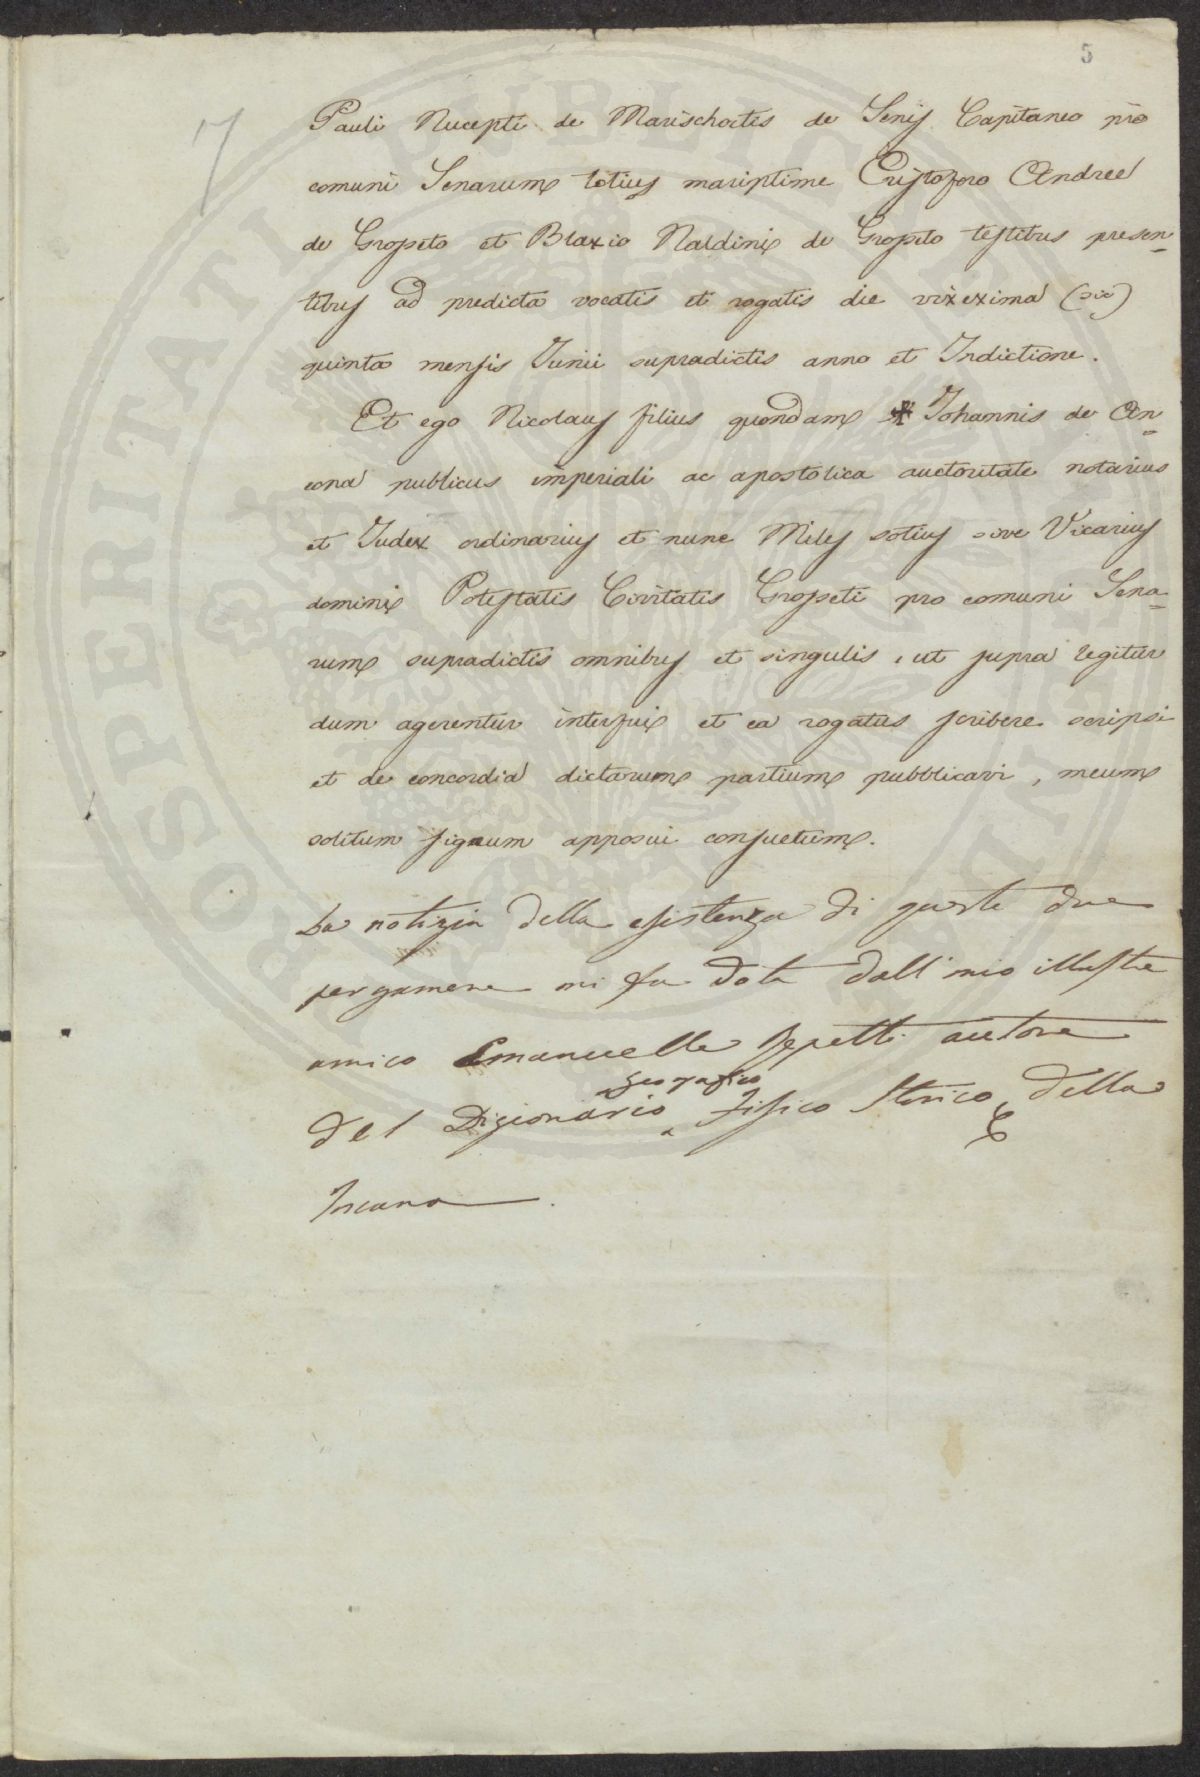 5
7
Pauli Nucepti de Marischoctis de Senis Capitaneo pro
comuni Senarum totius mariptime Cristoforo Andree
de Grosseto et Blaxio Naldini de Grosseto testibus presen=
tibus ad predicta vocatis et rogatis die vixexima (sic)
quinta mensis Junii supradictis anno et Indictione.
Et ego Nicolaus filius quondam Johannis de An=
cona publicus imperiali ac apostolica auctoritate notarius
et Judex ordinarius et nunc Miles sotius sive Vicarius
domini Potestatis Civitatis Grosseti pro comuni Sena=
rum supradictis omnibus et singulis, ut supra legitur
dum agerentur interfui et ea rogatus scribere scripsi
et de concordia dictarum partium pubblicavi, meum
solitum signum apposui consuetum.
La notizia della esistenza di queste due
pergamene mi fu data dall' mio illustre
amico Emanuelle Repetti autore
geografico
del Dizionario Fisico Storico della
Toscana.
PROSPERITATI PUBLICAE